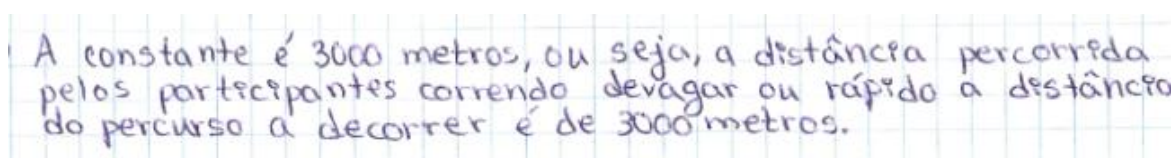 A constante é 3000 metros, ou seja, a distância percorrida
pelos participantes correndo devagar ou rápido a distância
do percurso a decorrer é de 3000 metros.